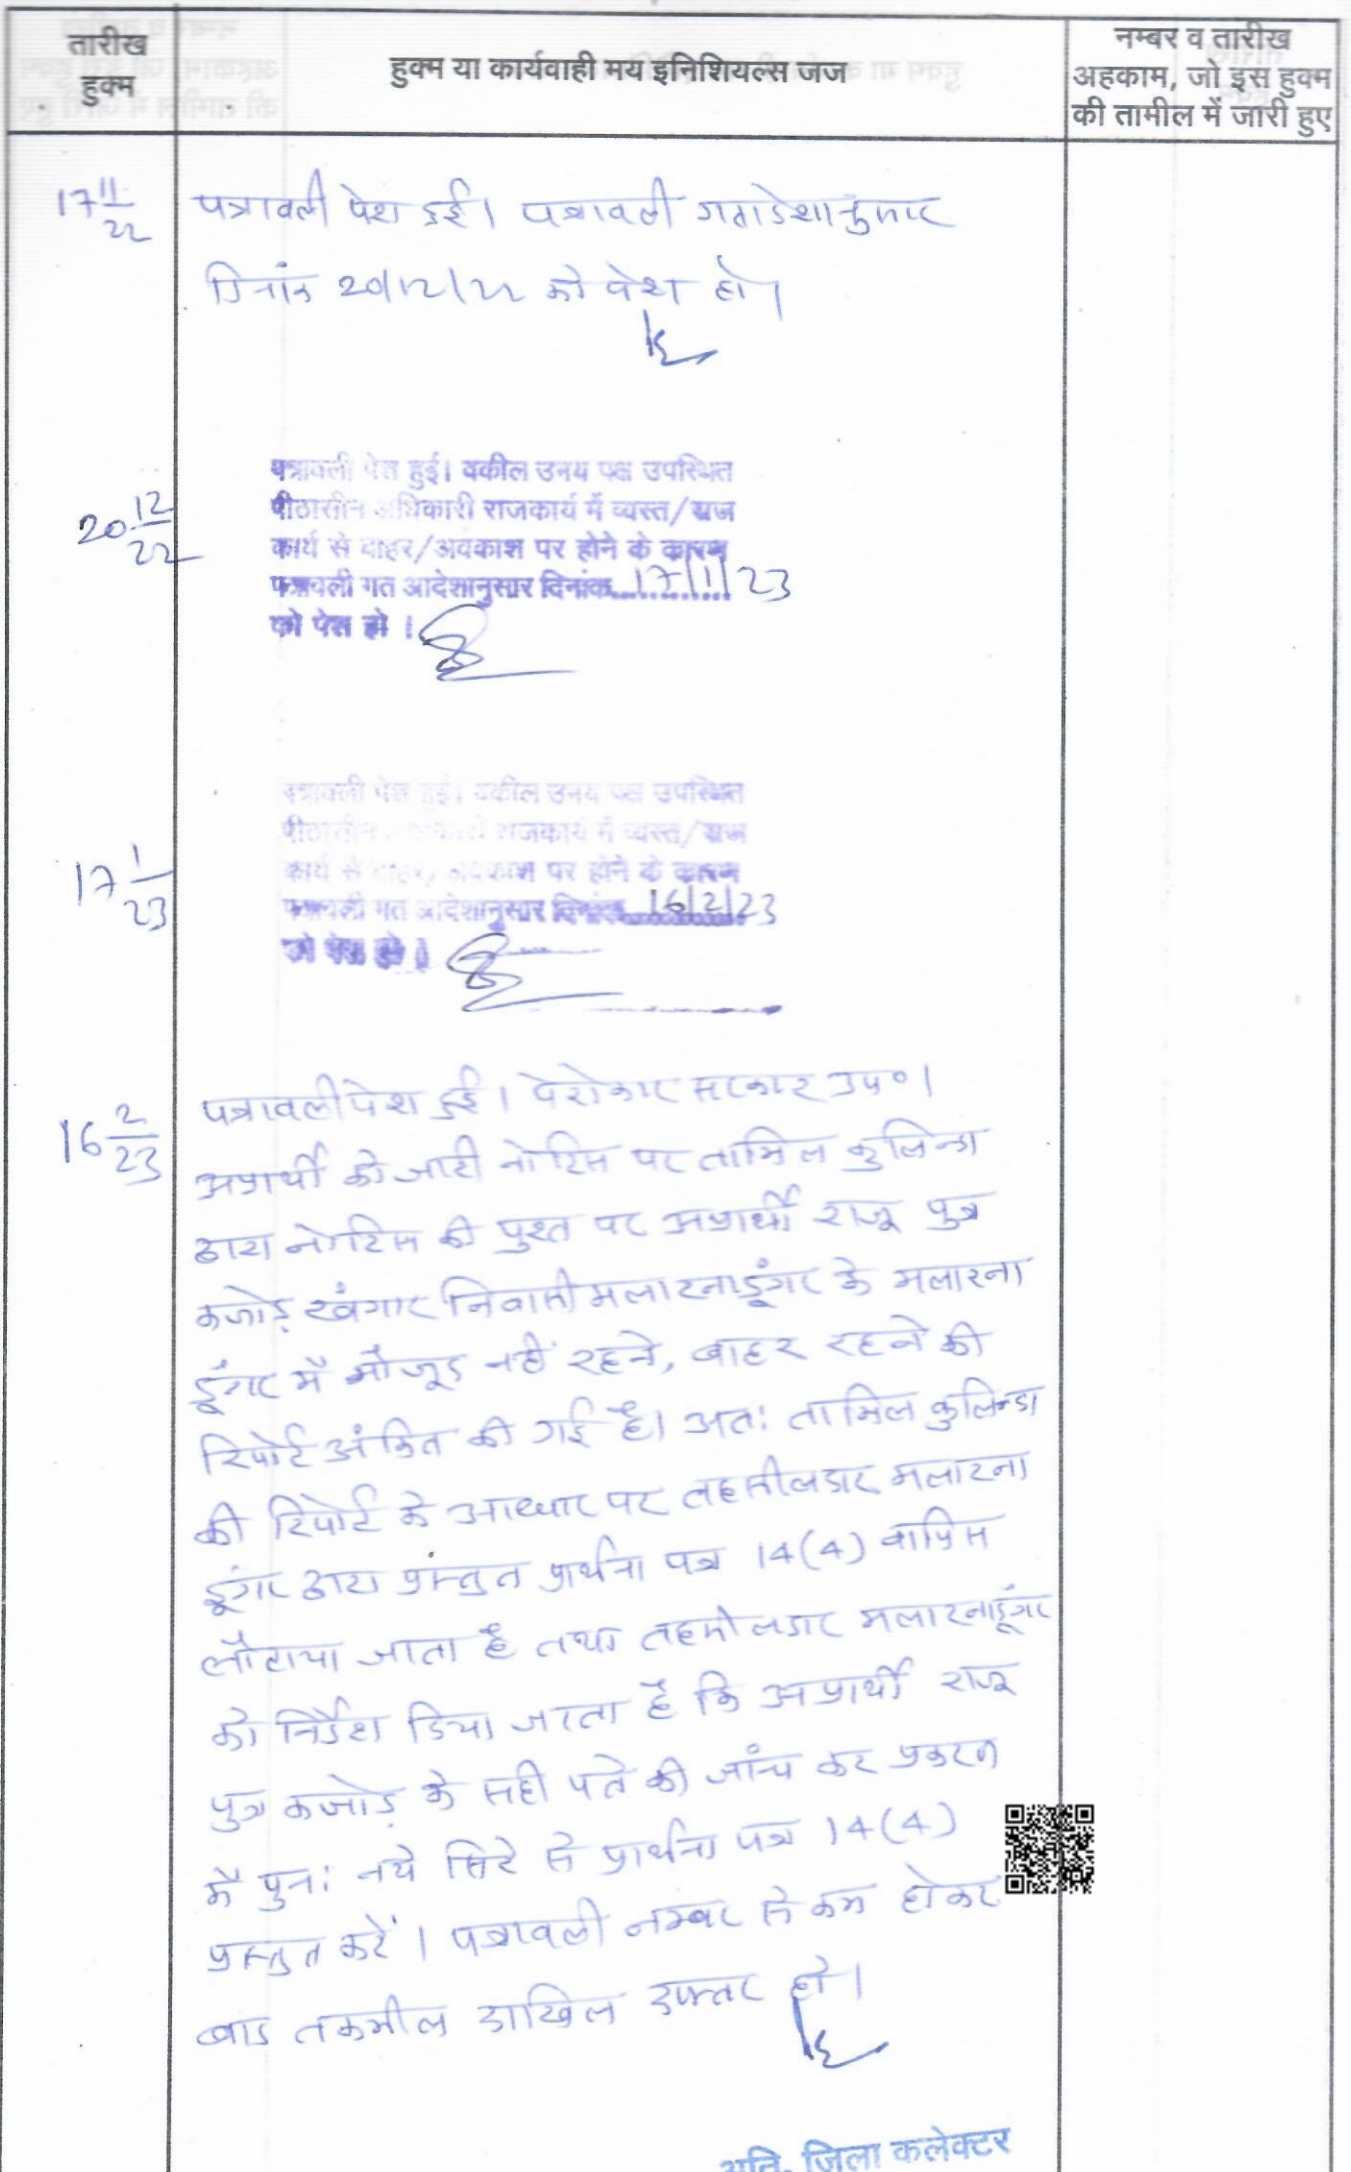 तारीख
हुक्म
हुक्म या कार्यवाही मय इनिशियल्स जज
नम्बर व तारीख
अहकाम, जो इस हुक्म
की तामील में जारी हुए
17 11/22
पत्रावली पेश हुई। पत्रावली गतादेशानुसार
दिनांक 20/12/22 को पेश हो।
20 12/22
पत्रावली पेश हुई। वकील उभय पक्ष उपस्थित
पीठासीन अधिकारी राजकार्य में व्यस्त/राज
कार्य से बाहर/अवकाश पर होने के कारण
पत्रावली गत आदेशानुसार दिनांक 17/1/23
को पेश हो।
17 1/23
पत्रावली पेश हुई। वकील उभय पक्ष उपस्थित
पीठासीन अधिकारी राजकार्य में व्यस्त/राज
कार्य से बाहर/अवकाश पर होने के कारण
पत्रावली गत आदेशानुसार दिनांक 16/2/23
को पेश हो।
16 2/23
पत्रावली पेश हुई। पेरोकार सरकार उप०।
अप्रार्थी को जारी नोटिस पर तामिल कुलिन्दा
द्वारा नोटिस की पुश्त पर अप्रार्थी राजू पुत्र
कजोड़ खंगार निवासी मलारनाडूंगर के मलारना
डूंगर में मौजूद नहीं रहने, बाहर रहने की
रिपोर्ट अंकित की गई है। अतः तामिल कुलिन्दा
की रिपोर्ट के आधार पर तहसीलदार मलारना
डूंगर द्वारा प्रस्तुत प्रार्थना पत्र 14(4) वापिस
लौटाया जाता है तथा तहसीलदार मलारनाडूंगर
को निर्देश दिया जाता है कि अप्रार्थी राजू
पुत्र कजोड़ के सही पते की जांच कर प्रकरण
में पुनः नये सिरे से प्रार्थना पत्र 14(4)
प्रस्तुत करें। पत्रावली नम्बर से कम होकर
बाद तकमील दाखिल दफ्तर हो।
अति. जिला कलेक्टर